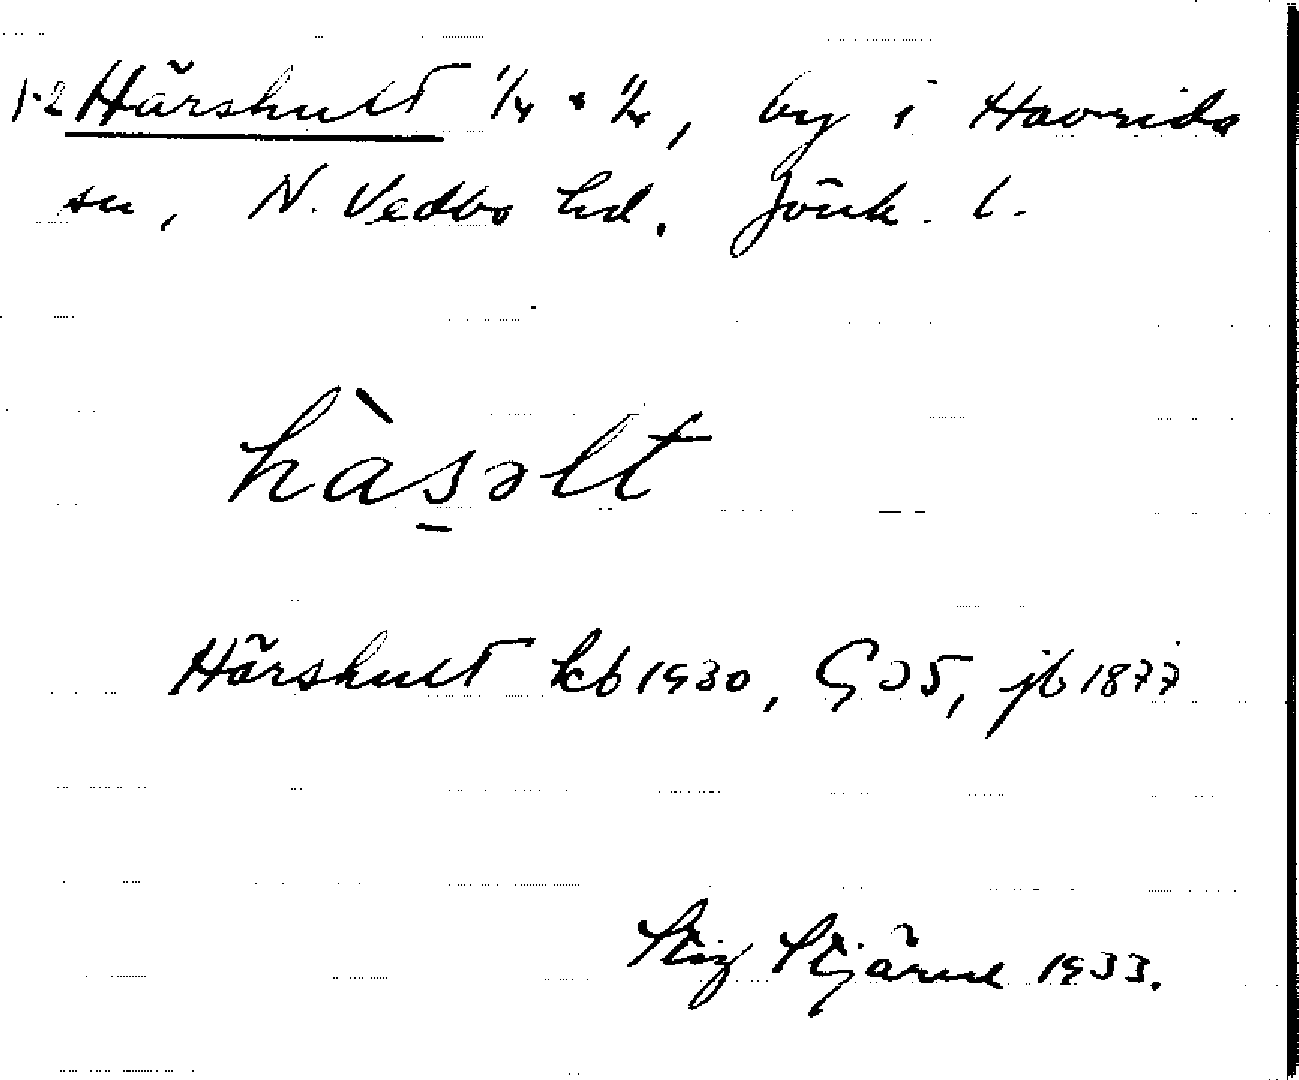 1-2 Hårshult 1/4 + 1/4, by i Haurida
sn, N. Vedbo hd. Jönk. l.
hàs̠əlt
Hårshult kb 1930, GS, jb 1877
Stig Stjärne 1933.